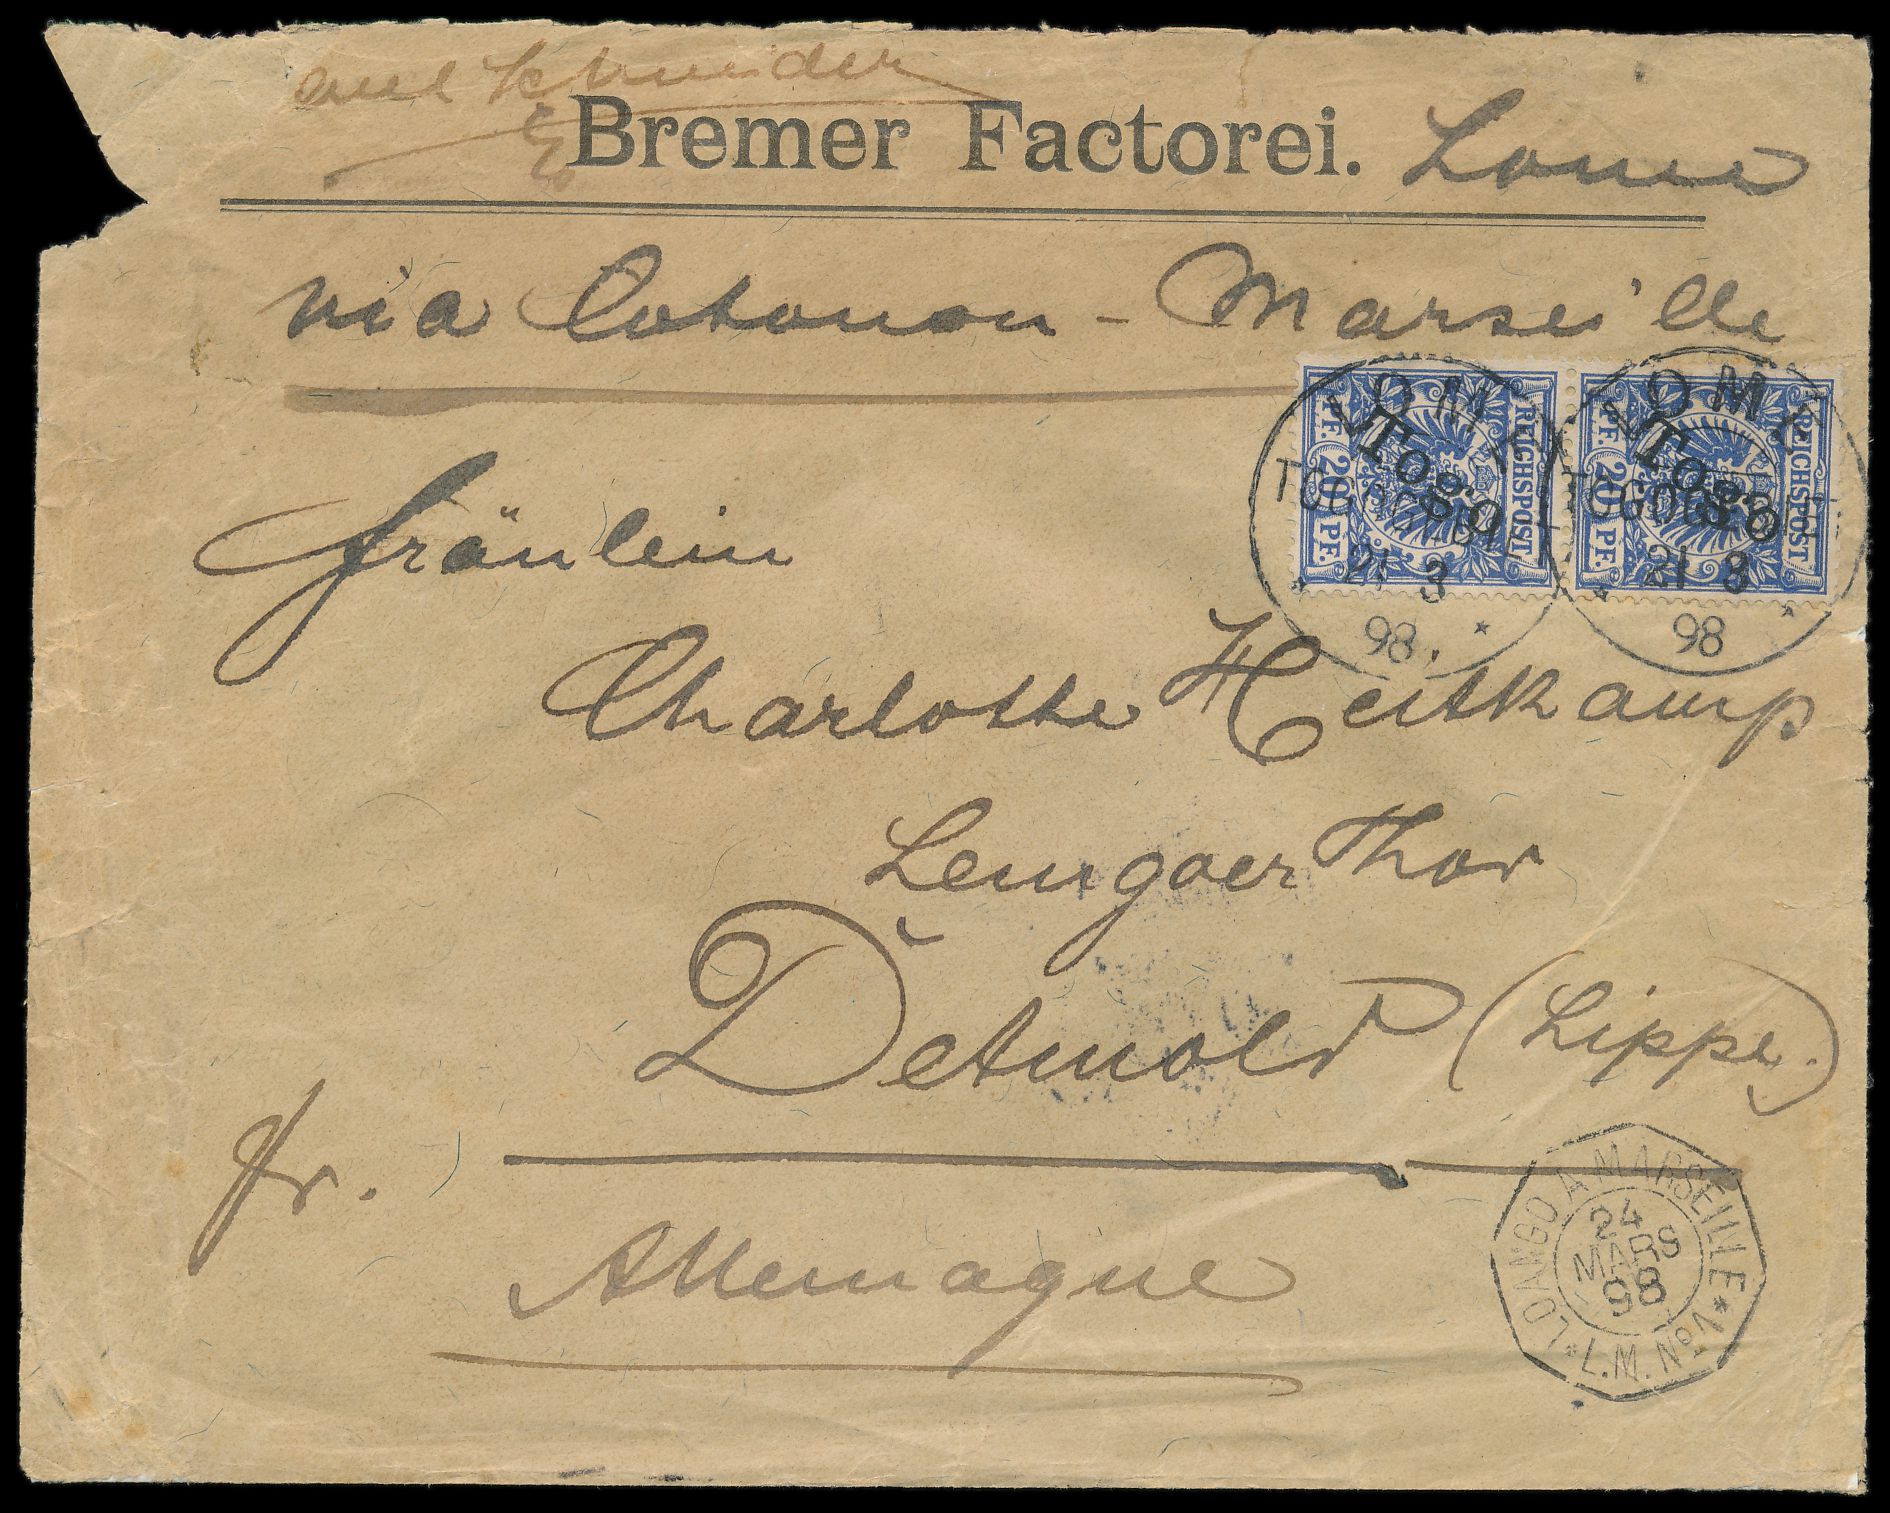 Schneider
Bremer Factorei. Lome
via Cotonou - Marseille
REICHSPOST
20 PF. 20 PF.
Togo
REICHSPOST
20 PF. 20 PF.
Togo
LOME
TOGOGEBIET
21 3
98
LOME
TOGOGEBIET
21 3
98
Fräulein
Charlotte Heitkamp
Lemgoer Thor
Detmold (Lippe.)
fr.
Allemagne
LOANGO A MARSEILLE
24
MARS
98
L.M. No 1